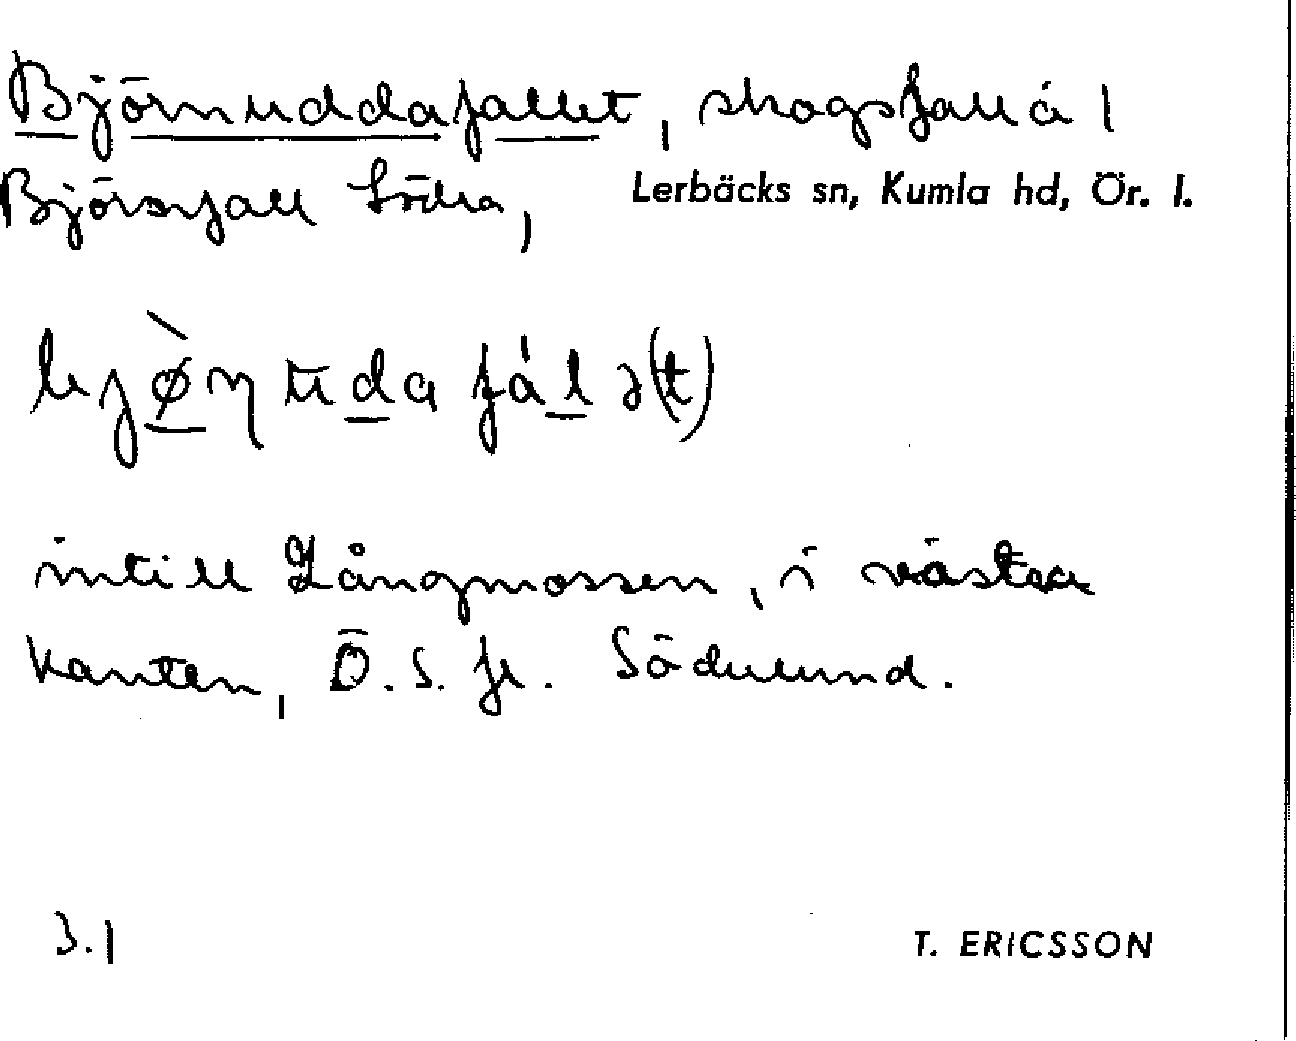 Björnuddafallet, skogsfall å 1
Björnfall Södra, Lerbäcks sn, Kumla hd, Ör. l.
intill Långmossen, i västra
kanten, Ö. S. fr. Söderlund.
3.1 T. ERICSSON